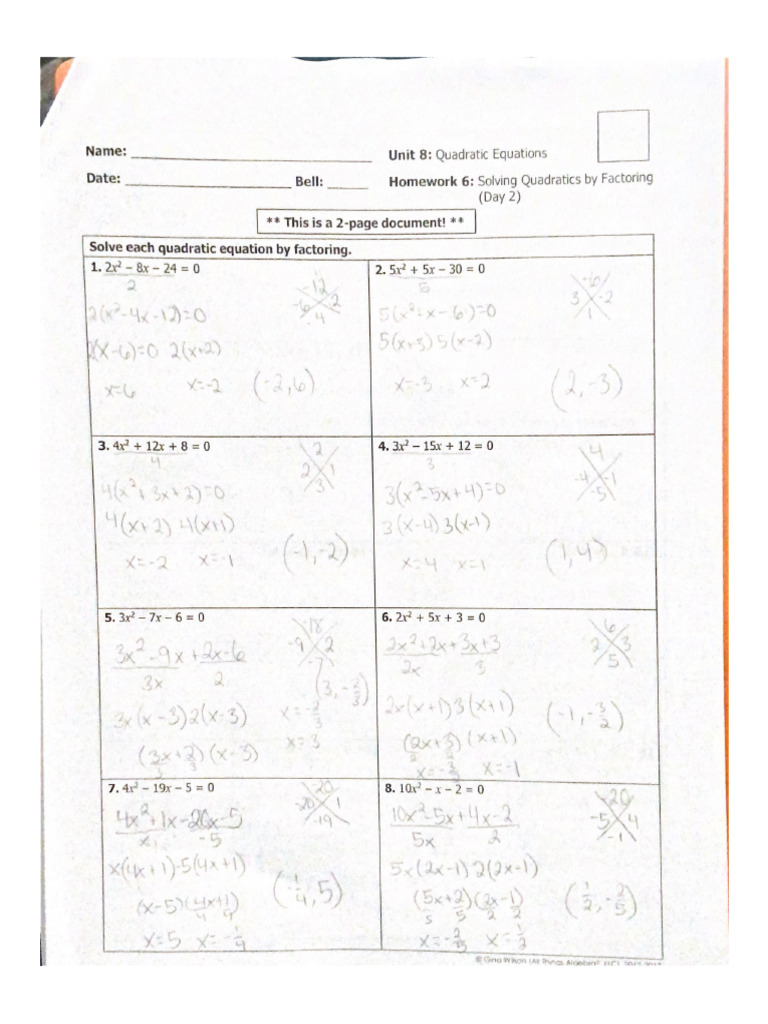 Name: ____________________ Unit 8: Quadratic Equations
Date: ____________________ Bell: _____ Homework 6: Solving Quadratics by Factoring
(Day 2)
** This is a 2-page document! **
Solve each quadratic equation by factoring.
1. 2x² – 8x – 24 = 0
2
2(x²-4x-12)=0
2(x-6)=0 2(x+2)
x=6 x=-2 (-2,6)
-12
-6 2
-4
2. 5x² + 5x – 30 = 0
5
5(x²+x-6)=0
5(x+3)5(x-2)
x=-3 x=2 (2,-3)
-6
3 -2
1
3. 4x² + 12x + 8 = 0
4
4(x²+3x+2)=0
4(x+2) 4(x+1)
x=-2 x=-1 (-1,-2)
2
2 1
3
4. 3x² – 15x + 12 = 0
3
3(x²-5x+4)=0
3(x-4)3(x-1)
x=4 x=1 (1,4)
4
-4 -1
-5
5. 3x² – 7x – 6 = 0
3x²-9x+2x-6
3x 2
3x(x-3)2(x-3)
(3x+2)(x-3)
3 3
x=-2/3
x=3
(3,-2/3)
18
-9 2
-7
6. 2x² + 5x + 3 = 0
2x²+2x+3x+3
2x 3
2x(x+1)3(x+1)
(2x+3)(x+1)
2 2
x=-3/2 x=-1
(-1,-3/2)
6
2 3
5
7. 4x² – 19x – 5 = 0
4x²+1x-20x-5
x -5
x(4x+1)-5(4x+1)
(x-5)(4x+1)
4 4
x=5 x=-1/4
(-1/4,5)
-20
-20 1
-19
8. 10x² – x – 2 = 0
10x²-5x+4x-2
5x 2
5x(2x-1)2(2x-1)
(5x+2)(2x-1)
5 5 2 2
x=-2/5 x=1/2
(1/2,-2/5)
-20
-5 4
-1
© Gina Wilson (All Things Algebra®, LLC),